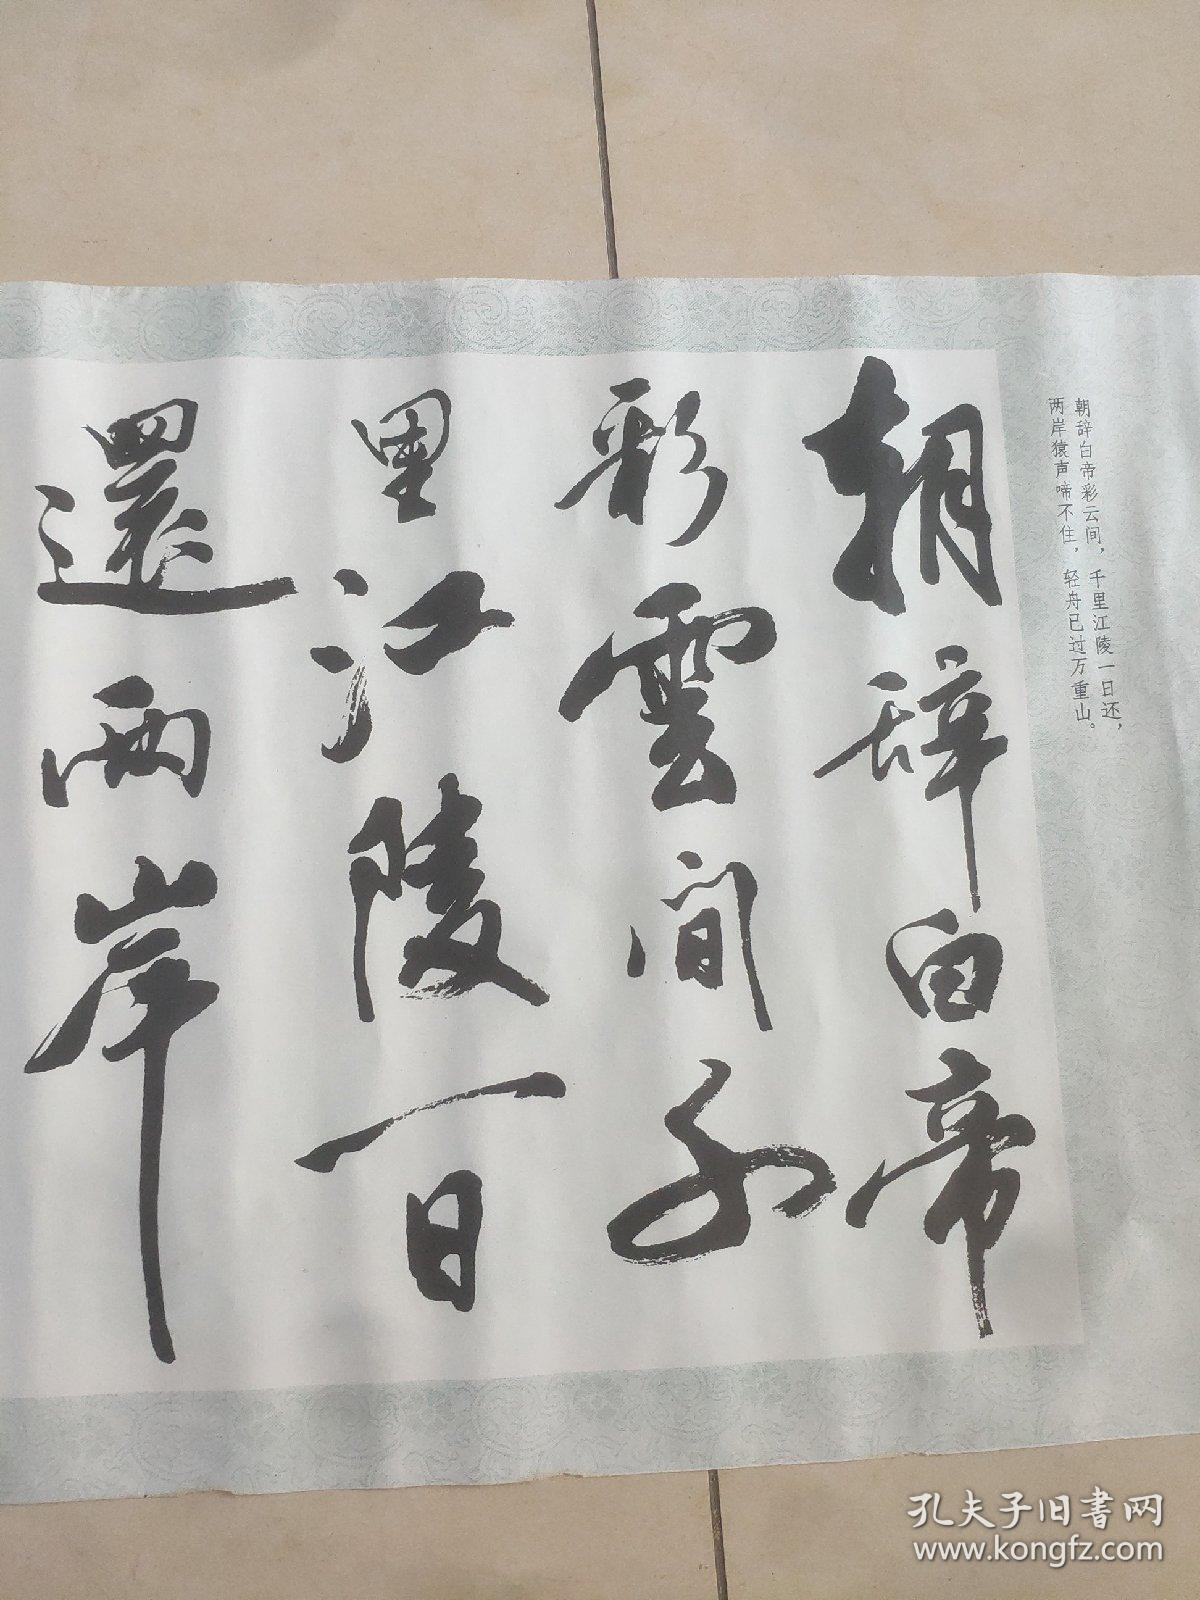 朝辞白帝彩云间，千里江陵一日还，
两岸猿声啼不住，轻舟已过万重山。
朝辭白帝
彩雲间千
里江陵一日
還兩岸
孔夫子旧书网
www.kongfz.com